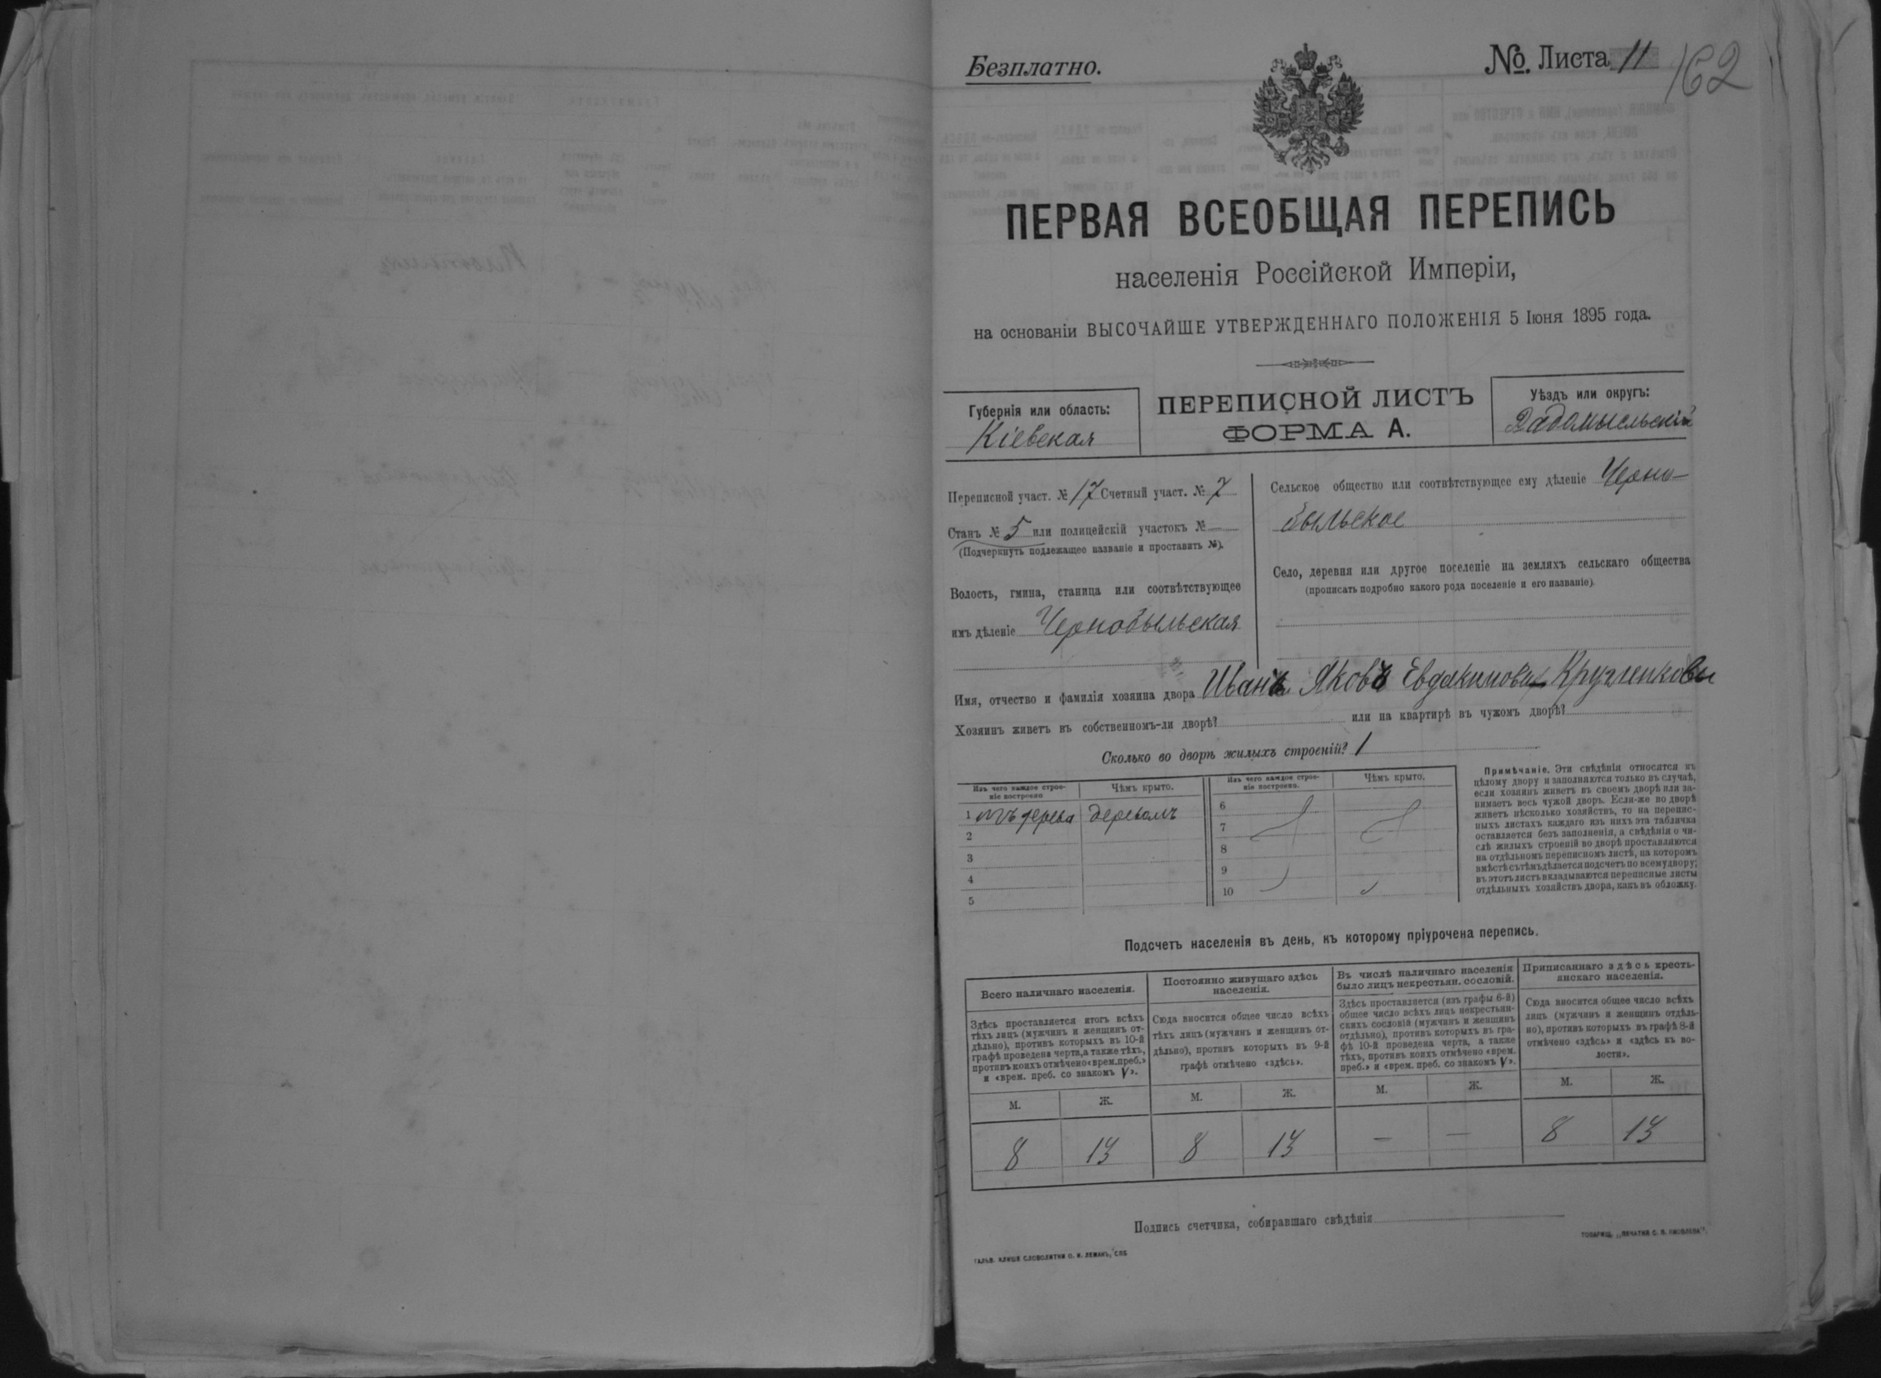 Безплатно.
№. Листа 11
162
ПЕРВАЯ ВСЕОБЩАЯ ПЕРЕПИСЬ
населенія Россійской Имперіи,
на основаніи ВЫСОЧАЙШЕ УТВЕРЖДЕННАГО ПОЛОЖЕНІЯ 5 Іюня 1895 года.
Губернія или область:
Кіевская
ПЕРЕПИСНОЙ ЛИСТЪ
ФОРМА А.
Уѣздъ или округъ:
Радомысльскій
Переписной участ. № 17 Счетный участ. № 7
Станъ № 5 или полицейскій участокъ № —
(Подчеркнуть подлежащее названіе и проставить №).
Волость, гмина, станица или соотвѣтствующее
имъ дѣленіе Чернобыльская
Сельское общество или соотвѣтствующее ему дѣленіе Черно-
быльское
Село, деревня или другое поселеніе на земляхъ сельскаго общества
(прописать подробно какого рода поселеніе и его названіе).
Имя, отчество и фамилія хозяина двора Иванъ Яковъ Евдокимовы Кругленковы
Хозяинъ живетъ въ собственномъ-ли дворѣ? или на квартирѣ въ чужомъ дворѣ?
Сколько во дворѣ жилыхъ строеній? 1
Изъ чего каждое строе-
ніе построено
Чѣмъ крыто.
1 изъ дерева деревомъ
2
3
4
5
Изъ чего каждое строе-
ніе построено.
Чѣмъ крыто.
6
7
8
9
10
Примѣчаніе. Эти свѣдѣнія относятся къ
цѣлому двору и заполняются только въ случаѣ,
если хозяинъ живетъ въ своемъ дворѣ или за-
нимаетъ весь чужой дворъ. Если-же во дворѣ
живетъ нѣсколько хозяйствъ, то на перепис-
ныхъ листахъ каждаго изъ нихъ эта табличка
оставляется безъ заполненія, а свѣдѣнія о чи-
слѣ жилыхъ строеній во дворѣ проставляются
на отдѣльномъ переписномъ листѣ, на которомъ
вмѣстѣ съ тѣмъ дѣлается подсчетъ по всему двору;
въ этотъ листъ вкладываются переписные листы
отдѣльныхъ хозяйствъ двора, какъ въ обложку.
Подсчетъ населенія въ день, къ которому пріурочена перепись.
Всего наличнаго населенія.
Здѣсь проставляется итогъ всѣхъ
тѣхъ лицъ (мужчинъ и женщинъ от-
дѣльно), противъ которыхъ въ 10-й
графѣ проведена черта, а также тѣхъ,
противъ коихъ отмѣчено «врем. преб.»
и «врем. преб. со знакомъ V».
М. Ж.
8 13
Постоянно живущаго здѣсь
населенія.
Сюда вносится общее число всѣхъ
тѣхъ лицъ (мужчинъ и женщинъ от-
дѣльно), противъ которыхъ въ 9-й
графѣ отмѣчено «здѣсь».
М. Ж.
8 13
Въ числѣ наличнаго населенія
было лицъ некрестьян. сословій.
Здѣсь проставляется (изъ графы 6-й)
общее число всѣхъ лицъ некрестьян-
скихъ сословій (мужчинъ и женщинъ
отдѣльно), противъ которыхъ въ гра-
фѣ 10-й проведена черта, а также
тѣхъ, противъ коихъ отмѣчено «врем.
преб.» и «врем. преб. со знакомъ V».
М. Ж.
— —
Приписаннаго здѣсь кресть-
янскаго населенія.
Сюда вносится общее число всѣхъ
лицъ (мужчинъ и женщинъ отдѣль-
но), противъ которыхъ въ графѣ 8-й
отмѣчено «здѣсь» и «здѣсь въ во-
лости».
М. Ж.
8 13
Подпись счетчика, собиравшаго свѣдѣнія
ГАЛЬВ. КЛИШЕ СЛОВОЛИТНИ О. И. ЛЕМАНЪ, СПБ.
ТОВАРИЩ. „ПЕЧАТНЯ С. П. ЯКОВЛЕВА".